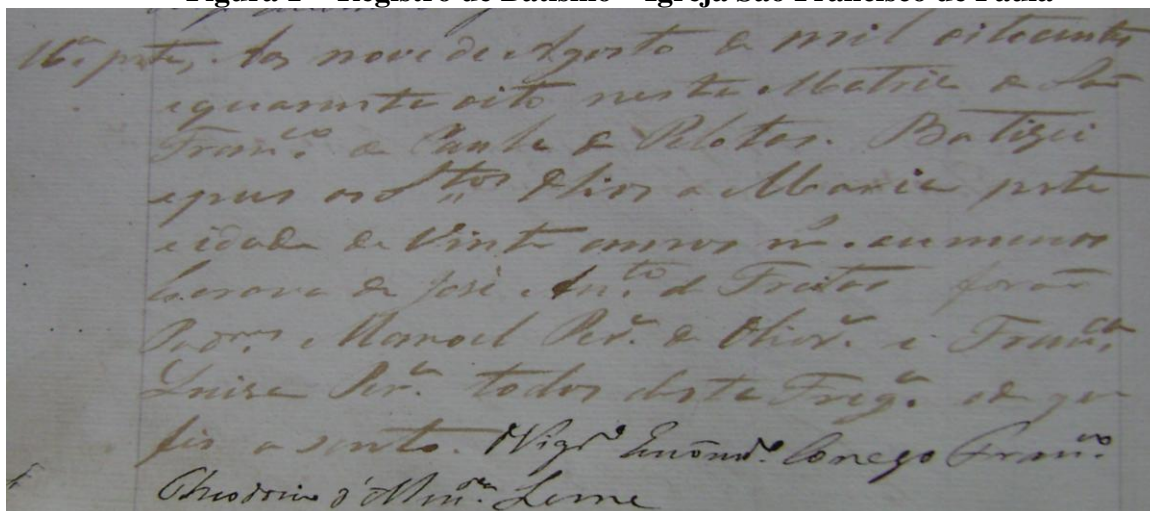 Figura 1 – Registro de Batismo – Igreja São Francisco de Paula
Mª prta, Aos nove de Agosto de mil oitocentos
equarenta oito nesta Matriz de São
Franco de Paula de Pelotas. Batizei
epus os Stos Olios a Maria preta
eidade de Vinte annos ms. ou menos
Escrava de José Anto de Freitas forão
Padrs. Manoel Perª de Olivrª e Franca
Luiza Perª todos desta Fregª ede que
fis asento. OVigro Encomdo Conego Franco
d'Almda Leme